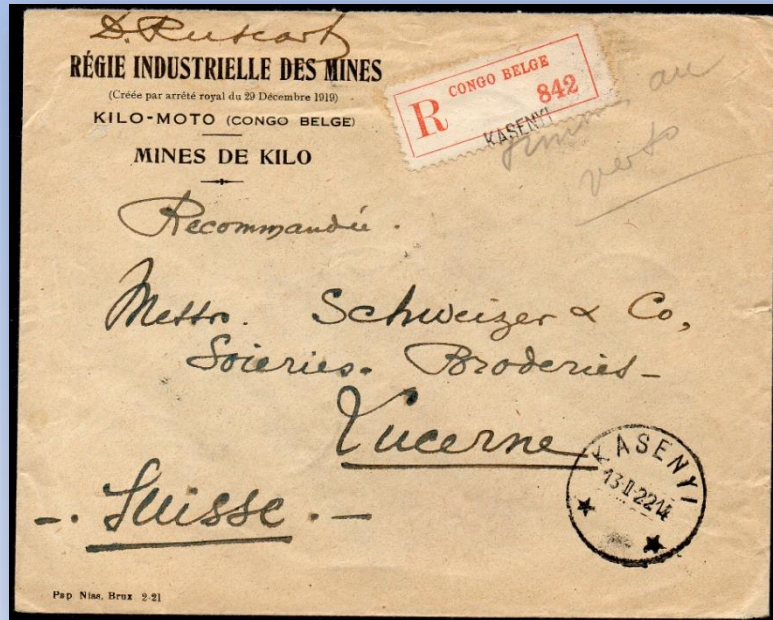 RÉGIE INDUSTRIELLE DES MINES
(Créée par arrêté royal du 29 Décembre 1919)
KILO-MOTO (CONGO BELGE)
MINES DE KILO
CONGO BELGE
R 842
KASENYI
au
verso
Recommandée.
Schweizer & Co,
Soieries. Broderies-
Lucerne
-. Suisse. -
KASENYI
13.II.22 14
Pap Niss. Brux 2-21